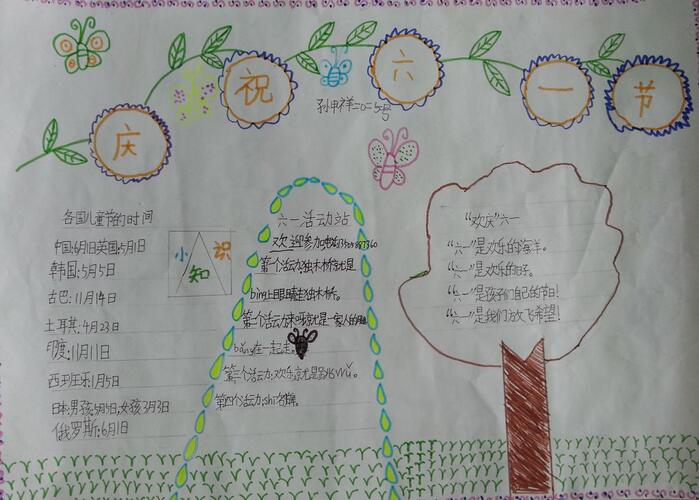 庆祝六一节
孙申祥
各国儿童节的时间
中国:6月1日英国:5月1日
韩国:5月5日
古巴:11月14日
土耳其:4月23日
印度:11月11日
西班牙:1月5日
日本:男孩:5月5日,女孩3月3日
俄罗斯:6月1日
小知识
六一活动站
欢迎参加
第一个活动:独木桥就是
bing上眼睛走独木桥。
第二个活动
bǎng在一起走。
第三个活动:欢乐
第四个活动:shi名牌。
“欢庆”六一
“六一”是欢乐的海洋。
“六一”是欢乐的日子。
“六一”是孩子们自己的节日!
“六一”是我们放飞希望!